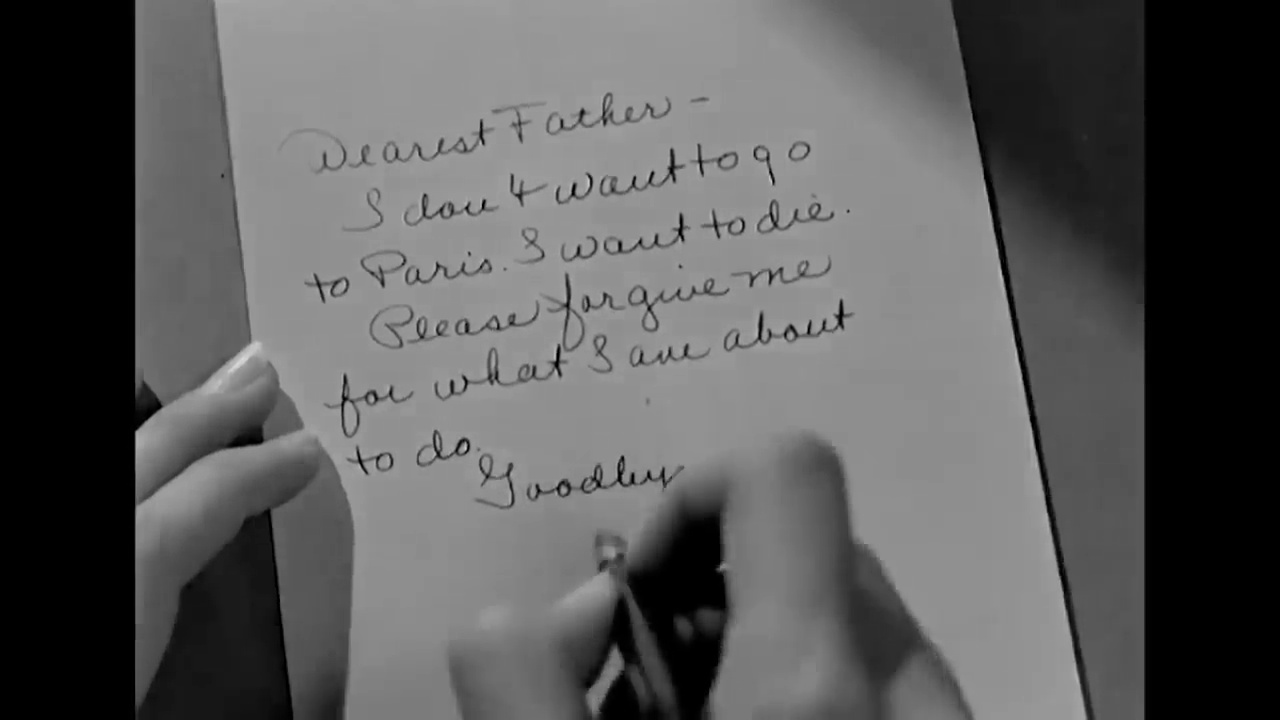 Dearest Father -
I don't want to go
to Paris. I want to die.
Please forgive me
for what I am about
to do.
Goodby